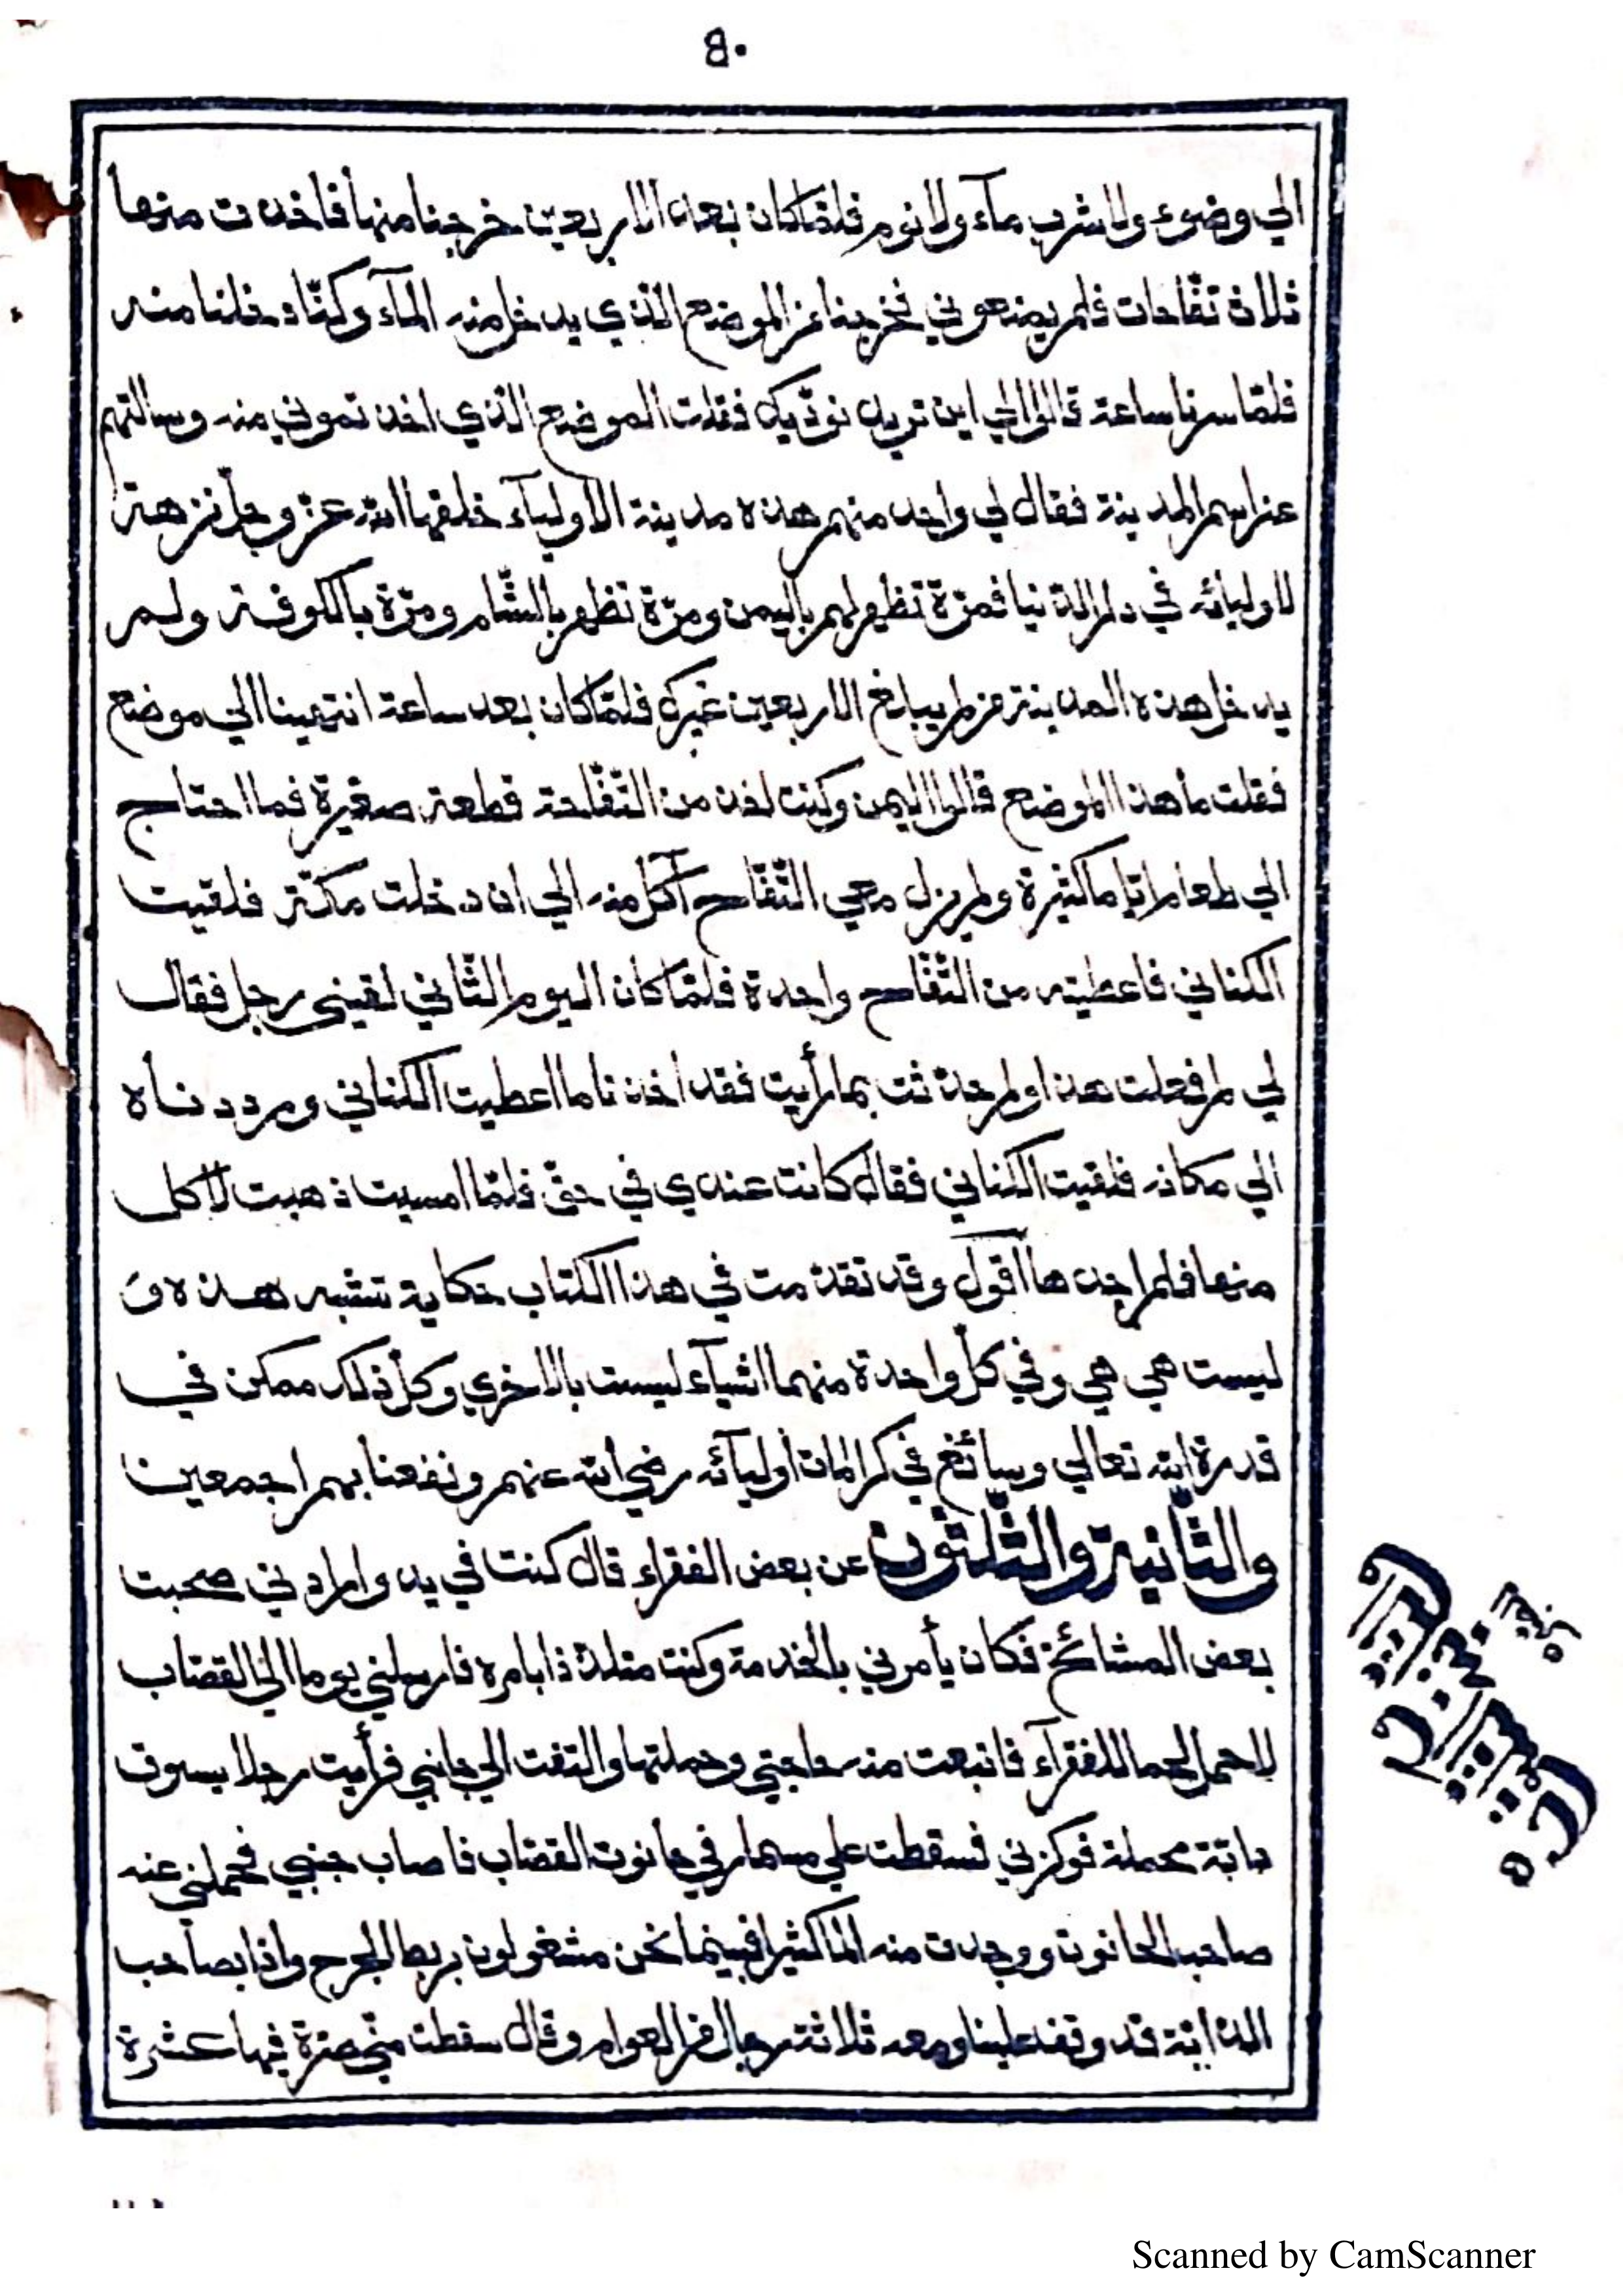 ٤٠
الي وضوء ولا شرب مآء ولا نوم فلمّا كان بعد الاربعين خرجنا منها فاخذت منها
ثلاث تفّاحات فلم يمنعوني فخرجنا من الموضع الّذي يدخل منه المآء وكنّا دخلنا منه
فلمّا سرنا ساعة قالوا لي اين تريد نودّيك فقلت الموضع الّذي اخذتموني منه وسالتهم
عن اسم المدينة فقال لي واحد منهم هذه مدينة الاوليآء خلقها الله عزّ وجلّ نزهة
لاوليائه في دار الدّنيا فمرّة تظهر لهم باليمن ومرّة تظهر بالشّام ومرّة بالكوفة ولم
يدخل هذه المدينة من لم يبلغ الاربعين غيرك فلمّا كان بعد ساعة انتهينا الي موضع
فقلت ما هذا الموضع قالوا اليمن وكنت اخذ من التّفّاحة قطعة صغيرة فما احتاج
الي طعام ايّاما كثيرة ولم يزل معي التّفّاح آكل منه الي ان دخلت مكّة فلقيت
الكناني فاعطيته من التّفّاح واحدة فلمّا كان اليوم الثّاني لقيني رجل فقال
لي لم فعلت هذا ولم حدّثت بما رأيت فقد اخذنا ما اعطيت الكناني ورددناه
الي مكانه فلقيت الكناني فقال كانت عندي في حقّ فلمّا امسيت ذهبت لاكل
منها فلم اجدها اقول وقد تقدّمت في هذا الكتاب حكاية تشبه هذه و
ليست هي هي وفي كلّ واحدة منهما اشيآء ليست بالاخري وكلّ ذلك ممكن في
قدرة الله تعالي وسائغ في كرامات أوليآئه رضي الله عنهم ونفعنا بهم اجمعين
والثّانية والثّلثون عن بعض الفقراء قال كنت في بدو ارادتي صحبت
بعض المشائخ فكان يأمرني بالخدمة وكنت متلذّذا بامره فارسلني يوما الي القصّاب
لاحمل لحما للفقرآء فابتعت منه حاجتي وحملتها والتفت الي جانبي فرأيت رجلا يسوق
دابّة محملة فوكزني فسقطت علي مسمار في حانوت القصّاب فاصاب جنبي فحملني عنه
صاحب الحانوت ووجدت منه الما كثيرا فبينما نحن مشغولون بربط الجرح واذا بصاحب
الدّابّة قد وقف علينا ومعه ثلاثة رجال من العوام وقال سقطت منّي صرّة فيها عشرة
Scanned by CamScanner